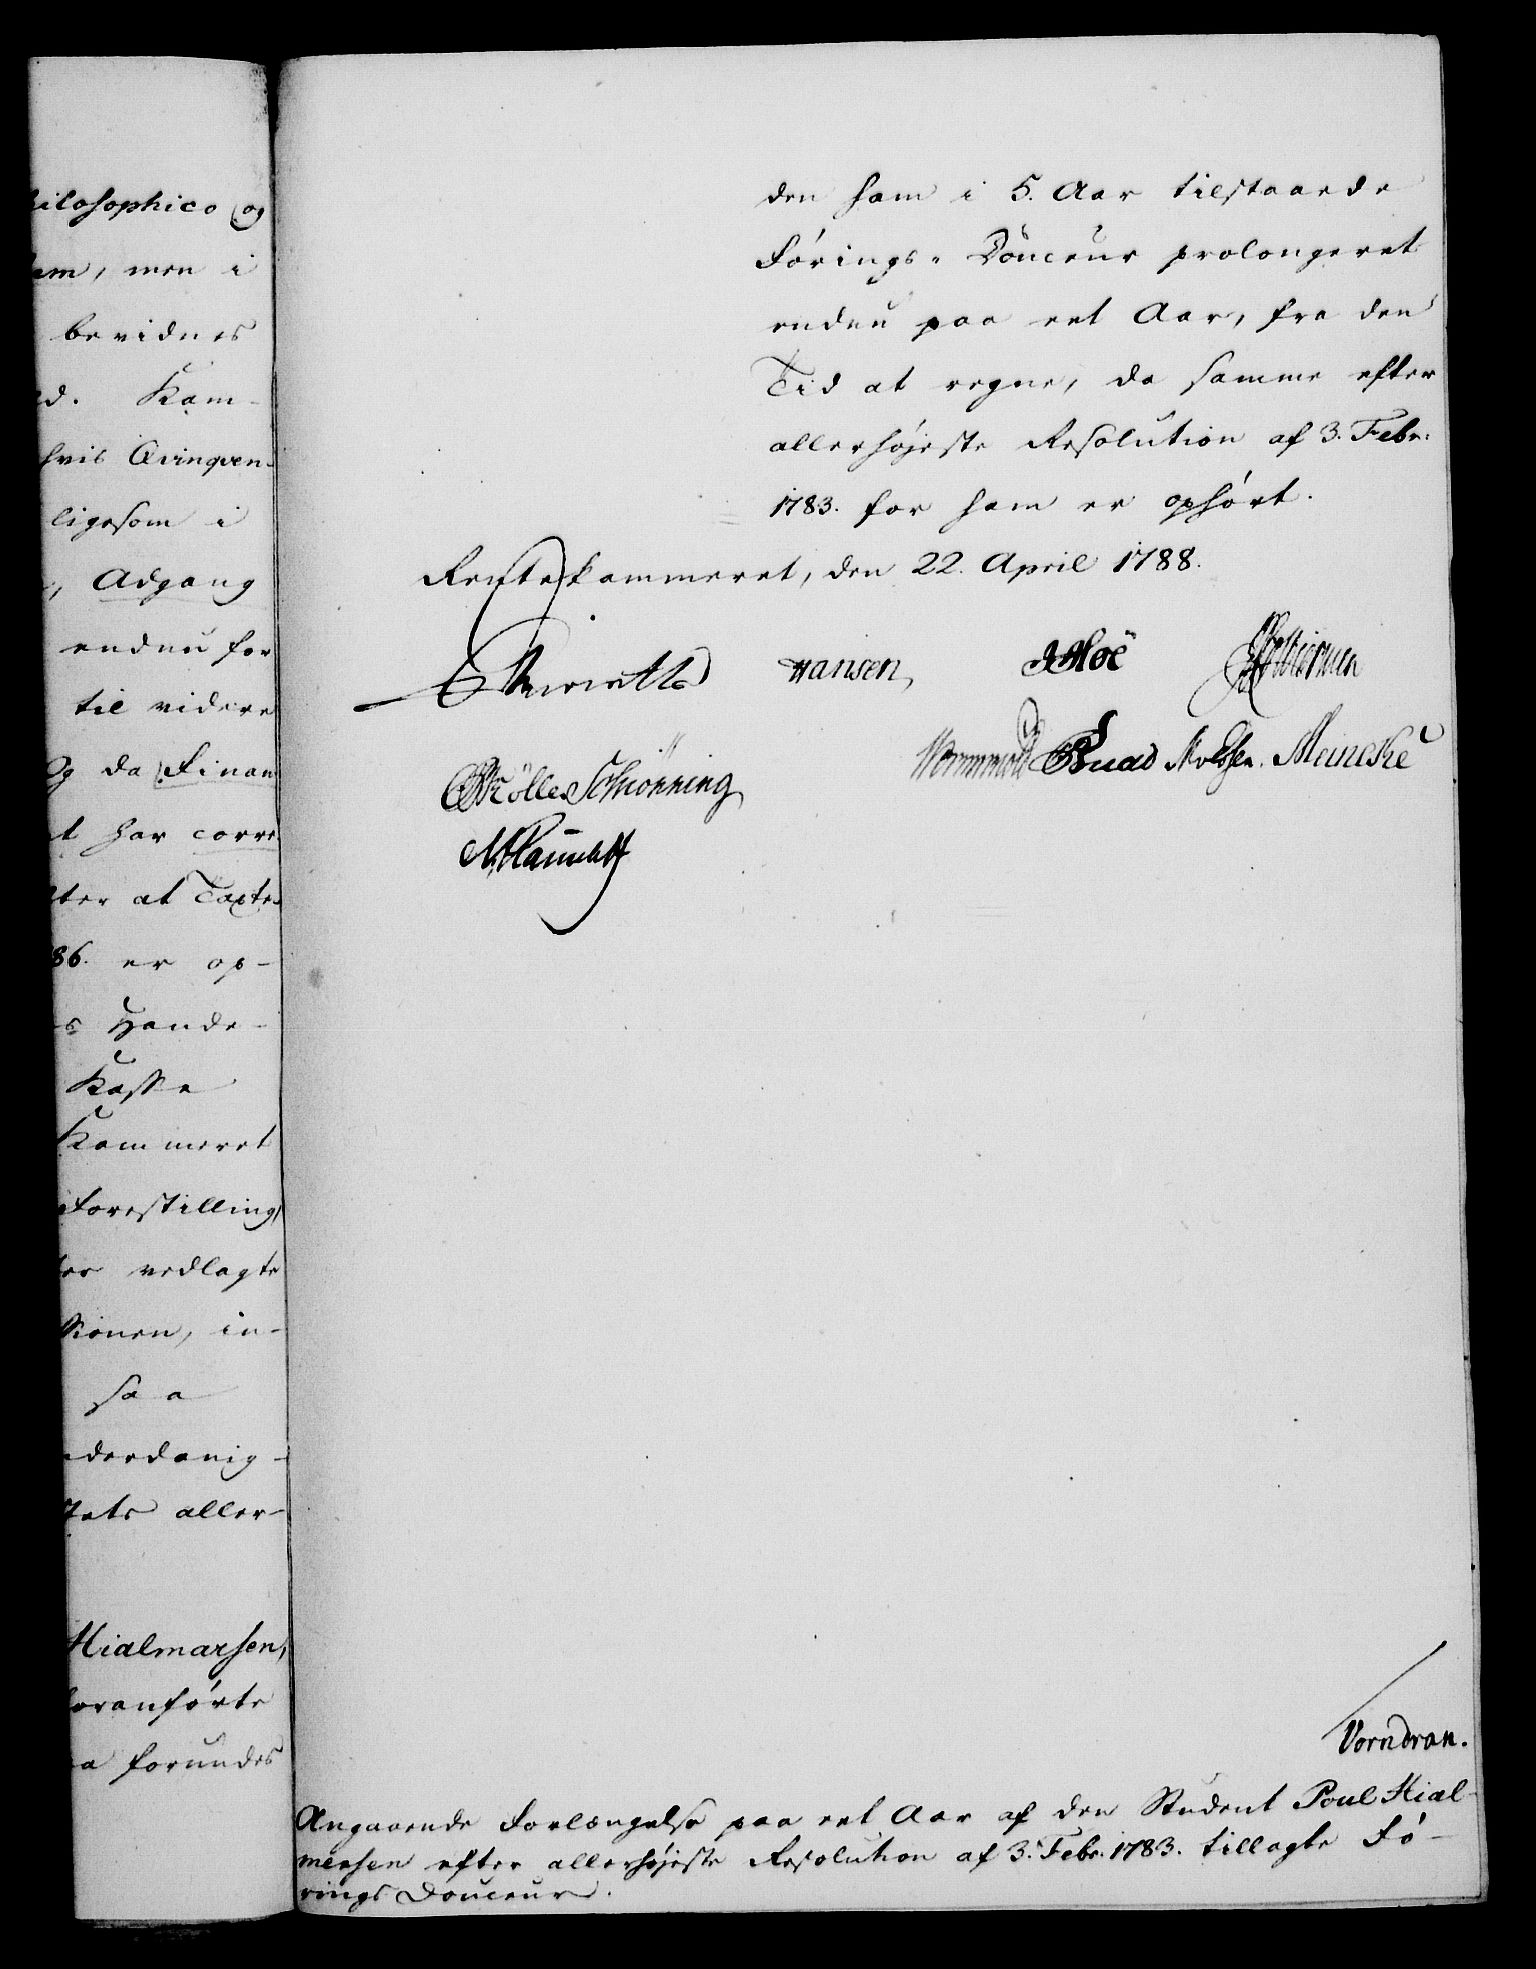 ilosophico og
em, men i
bevidnes
d. Kam-
hvis Qvinqven-
ligesom i
, Adgang
endnu for
til videre
Og da Finan
t har corre
ter at Texte
86. er op-
s Hande-
Kasse
Kammeret
Forestilling
er vedlagte
sionen, in-
saa
derdanig-
tets aller-
Hialmarsen,
foranførte
a forundes
den ham i 5. Aar tilstaaede
Førings-Douceur prolongeret
endnu paa eet Aar, fra den
Tid at regne, da samme efter
allerhøjeste Resolution af 3. Febr:
1783. for ham er ophørt.
Rentekammeret, den 22. April 1788.
Hansen,
Müller Schiønning
Meincke
Vorndran.
Angaaende Forlængelse paa eet Aar af den Student Poul Hial-
mersen efter allerhøjeste Resolution af 3. Febr. 1783. tillagte Fø-
rings Douceur.